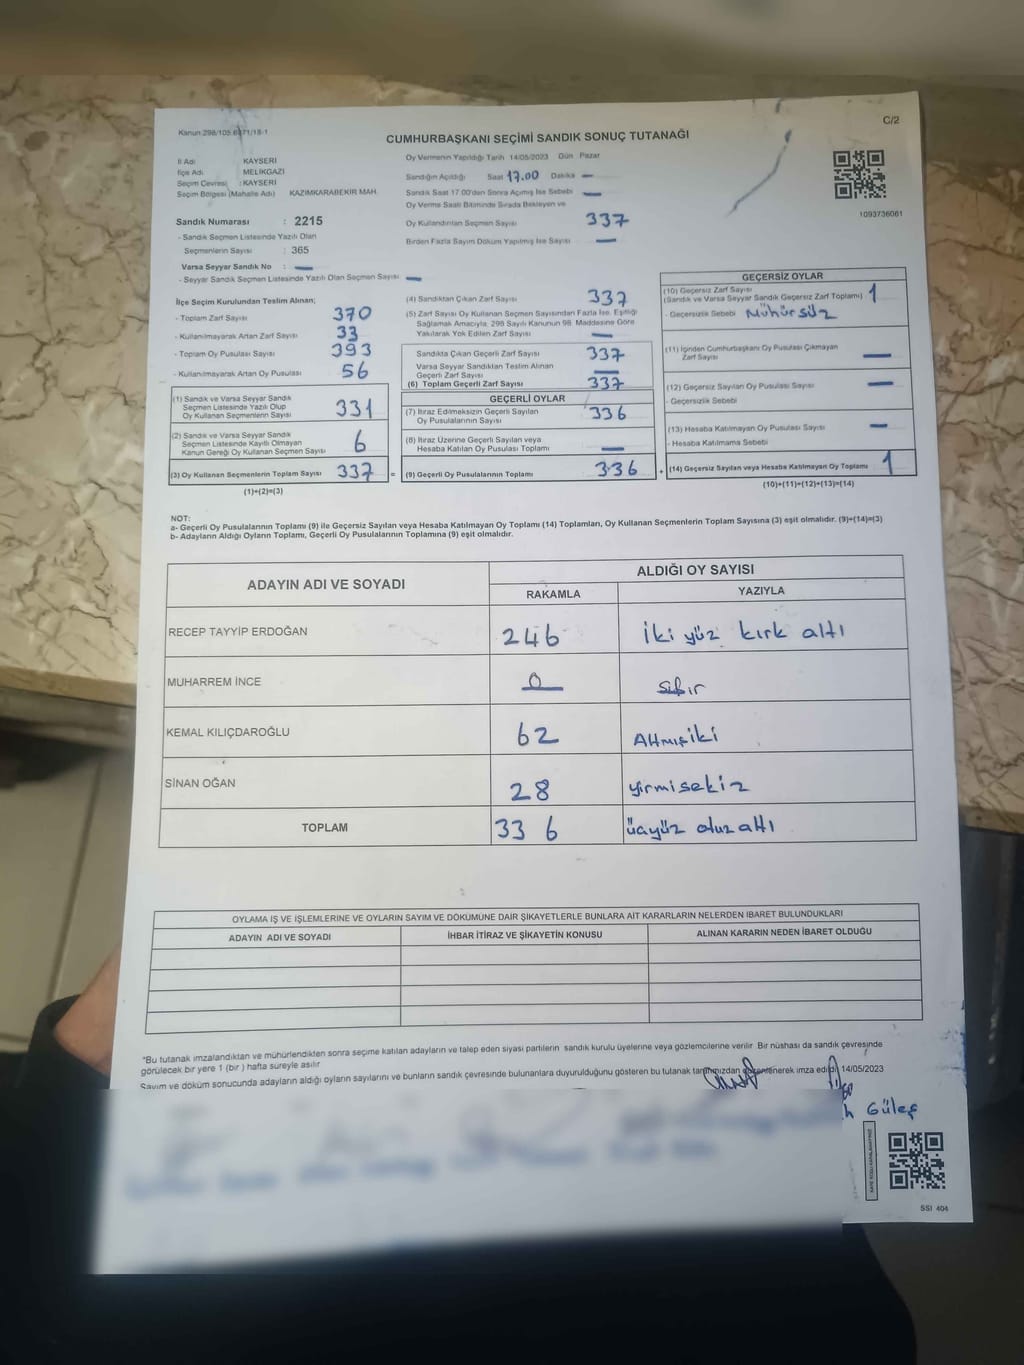 Kanun:298/105.6371/18-1
C/2
CUMHURBAŞKANI SEÇİMİ SANDIK SONUÇ TUTANAĞI
İl Adı KAYSERİ
İlçe Adı MELİKGAZİ
Seçim Çevresi : KAYSERİ
Seçim Bölgesi (Mahalle Adı) KAZIMKARABEKİR MAH.
Sandık Numarası : 2215
- Sandık Seçmen Listesinde Yazılı Olan
Seçmenlerin Sayısı : 365
Varsa Seyyar Sandık No : —
- Seyyar Sandık Seçmen Listesinde Yazılı Olan Seçmen Sayısı —
Oy Vermenin Yapıldığı Tarih 14/05/2023 Gün Pazar
Sandığın Açıldığı Saat 17.00 Dakika —
Sandık Saat 17.00'dan Sonra Açılmış İse Sebebi —
Oy Verme Saati Bitiminde Sırada Bekleyen ve
Oy Kullandırılan Seçmen Sayısı 337
Birden Fazla Sayım Döküm Yapılmış İse Sayısı —
1093736061
İlçe Seçim Kurulundan Teslim Alınan;
- Toplam Zarf Sayısı 370
- Kullanılmayarak Artan Zarf Sayısı 33
- Toplam Oy Pusulası Sayısı 393
- Kullanılmayarak Artan Oy Pusulası 56
(1) Sandık ve Varsa Seyyar Sandık
Seçmen Listesinde Yazılı Olup
Oy Kullanan Seçmenlerin Sayısı 331
(2) Sandık ve Varsa Seyyar Sandık
Seçmen Listesinde Kayıtlı Olmayan
Kanun Gereği Oy Kullanan Seçmen Sayısı 6
(3) Oy Kullanan Seçmenlerin Toplam Sayısı 337 =
(1)+(2)=(3)
(4) Sandıktan Çıkan Zarf Sayısı 337
(5) Zarf Sayısı Oy Kullanan Seçmen Sayısından Fazla İse, Eşitliği
Sağlamak Amacıyla, 298 Sayılı Kanunun 98. Maddesine Göre
Yakılarak Yok Edilen Zarf Sayısı —
Sandıkta Çıkan Geçerli Zarf Sayısı 337
Varsa Seyyar Sandıktan Teslim Alınan
Geçerli Zarf Sayısı —
(6) Toplam Geçerli Zarf Sayısı 337
GEÇERLİ OYLAR
(7) İtiraz Edilmeksizin Geçerli Sayılan
Oy Pusulalarının Sayısı 336
(8) İtiraz Üzerine Geçerli Sayılan veya
Hesaba Katılan Oy Pusulası Toplamı —
(9) Geçerli Oy Pusulalarının Toplamı 336 +
GEÇERSİZ OYLAR
(10) Geçersiz Zarf Sayısı
(Sandık ve Varsa Seyyar Sandık Geçersiz Zarf Toplamı) 1
- Geçersizlik Sebebi Mühürsüz
(11) İçinden Cumhurbaşkanı Oy Pusulası Çıkmayan
Zarf Sayısı —
(12) Geçersiz Sayılan Oy Pusulası Sayısı —
- Geçersizlik Sebebi
(13) Hesaba Katılmayan Oy Pusulası Sayısı —
- Hesaba Katılmama Sebebi
(14) Geçersiz Sayılan veya Hesaba Katılmayan Oy Toplamı 1
(10)+(11)+(12)+(13)=(14)
NOT:
a- Geçerli Oy Pusulalarının Toplamı (9) ile Geçersiz Sayılan veya Hesaba Katılmayan Oy Toplamı (14) Toplamları, Oy Kullanan Seçmenlerin Toplam Sayısına (3) eşit olmalıdır. (9)+(14)=(3)
b- Adayların Aldığı Oyların Toplamı, Geçerli Oy Pusulalarının Toplamına (9) eşit olmalıdır.
ADAYIN ADI VE SOYADI ALDIĞI OY SAYISI
RAKAMLA YAZIYLA
RECEP TAYYİP ERDOĞAN 246 iki yüz kırk altı
MUHARREM İNCE 0 sıfır
KEMAL KILIÇDAROĞLU 62 Altmışiki
SİNAN OĞAN 28 yirmisekiz
TOPLAM 336 üçyüz otuzaltı
OYLAMA İŞ VE İŞLEMLERİNE VE OYLARIN SAYIM VE DÖKÜMÜNE DAİR ŞİKAYETLERLE BUNLARA AİT KARARLARIN NELERDEN İBARET BULUNDUKLARI
ADAYIN ADI VE SOYADI İHBAR İTİRAZ VE ŞİKAYETİN KONUSU ALINAN KARARIN NEDEN İBARET OLDUĞU
*Bu tutanak imzalandıktan ve mühürlendikten sonra seçime katılan adayların ve talep eden siyasi partilerin sandık kurulu üyelerine veya gözlemcilerine verilir. Bir nüshası da sandık çevresinde
görülecek bir yere 1 (bir) hafta süreyle asılır
Sayım ve döküm sonucunda adayların aldığı oyların sayılarını ve bunların sandık çevresinde bulunanlara duyurulduğunu gösteren bu tutanak tarafımızdan düzenlenerek imza edildi. 14/05/2023
h Güleç
SSI 404